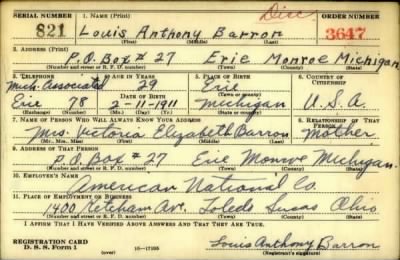 SERIAL NUMBER 1. NAME (Print) Disc. ORDER NUMBER
821 Louis Anthony Barron 3647
(First) (Middle) (Last)
2. ADDRESS (Print)
P.O. Box # 27 Erie Monroe Michigan
(Number and street or R. F. D. number) (Town) (County) (State)
3. TELEPHONE 4. AGE IN YEARS 5. PLACE OF BIRTH 6. COUNTRY OF CITIZENSHIP
Mich. Associated 29 Erie
DATE OF BIRTH (Town or county)
Erie 78 2-11-1911 Michigan U.S.A.
(Exchange) (Number) (Mo.) (Day) (Yr.) (State or country)
7. NAME OF PERSON WHO WILL ALWAYS KNOW YOUR ADDRESS 8. RELATIONSHIP OF THAT PERSON
Mrs. Victoria Elizabeth Barron Mother
(Mr., Mrs., Miss) (First) (Middle) (Last)
9. ADDRESS OF THAT PERSON
P.O. Box # 27 Erie Monroe Michigan.
(Number and street or R. F. D. number) (Town) (County) (State)
10. EMPLOYER'S NAME
American National Co.
11. PLACE OF EMPLOYMENT OR BUSINESS
1400 Ketcham Av. Toledo Lucas Ohio
(Number and street or R. F. D. number) (Town) (County) (State)
I AFFIRM THAT I HAVE VERIFIED ABOVE ANSWERS AND THAT THEY ARE TRUE.
REGISTRATION CARD
D. S. S. Form 1 (over) 16-17105 Louis Anthony Barron
(Registrant's signature)